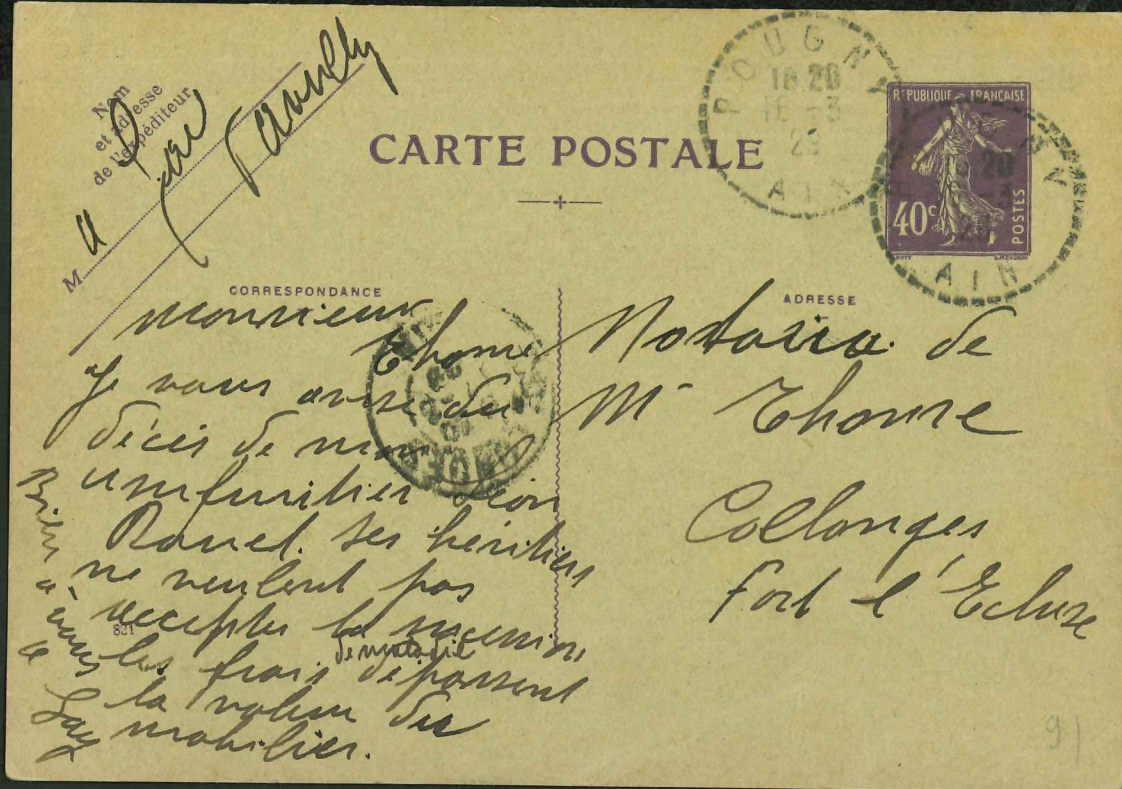 Nom
et adresse
de l'expéditeur
M
CARTE POSTALE
POUGNY
18 20
16 - 3
29
AIN
REPUBLIQUE FRANÇAISE
40c
POSTES
20
AIN
CORRESPONDANCE
ADRESSE
Monsieur
Thome
Je vous avise du
décès de mon
Léon
Ses héritiers
ne veulent pas
accepter la succession
de maladie
les frais dépassent
la valeur du
mobilier.
Bien à vous
Gay
821
Notaire de
Mr Thome
Collonges
Fort l'Ecluse
91